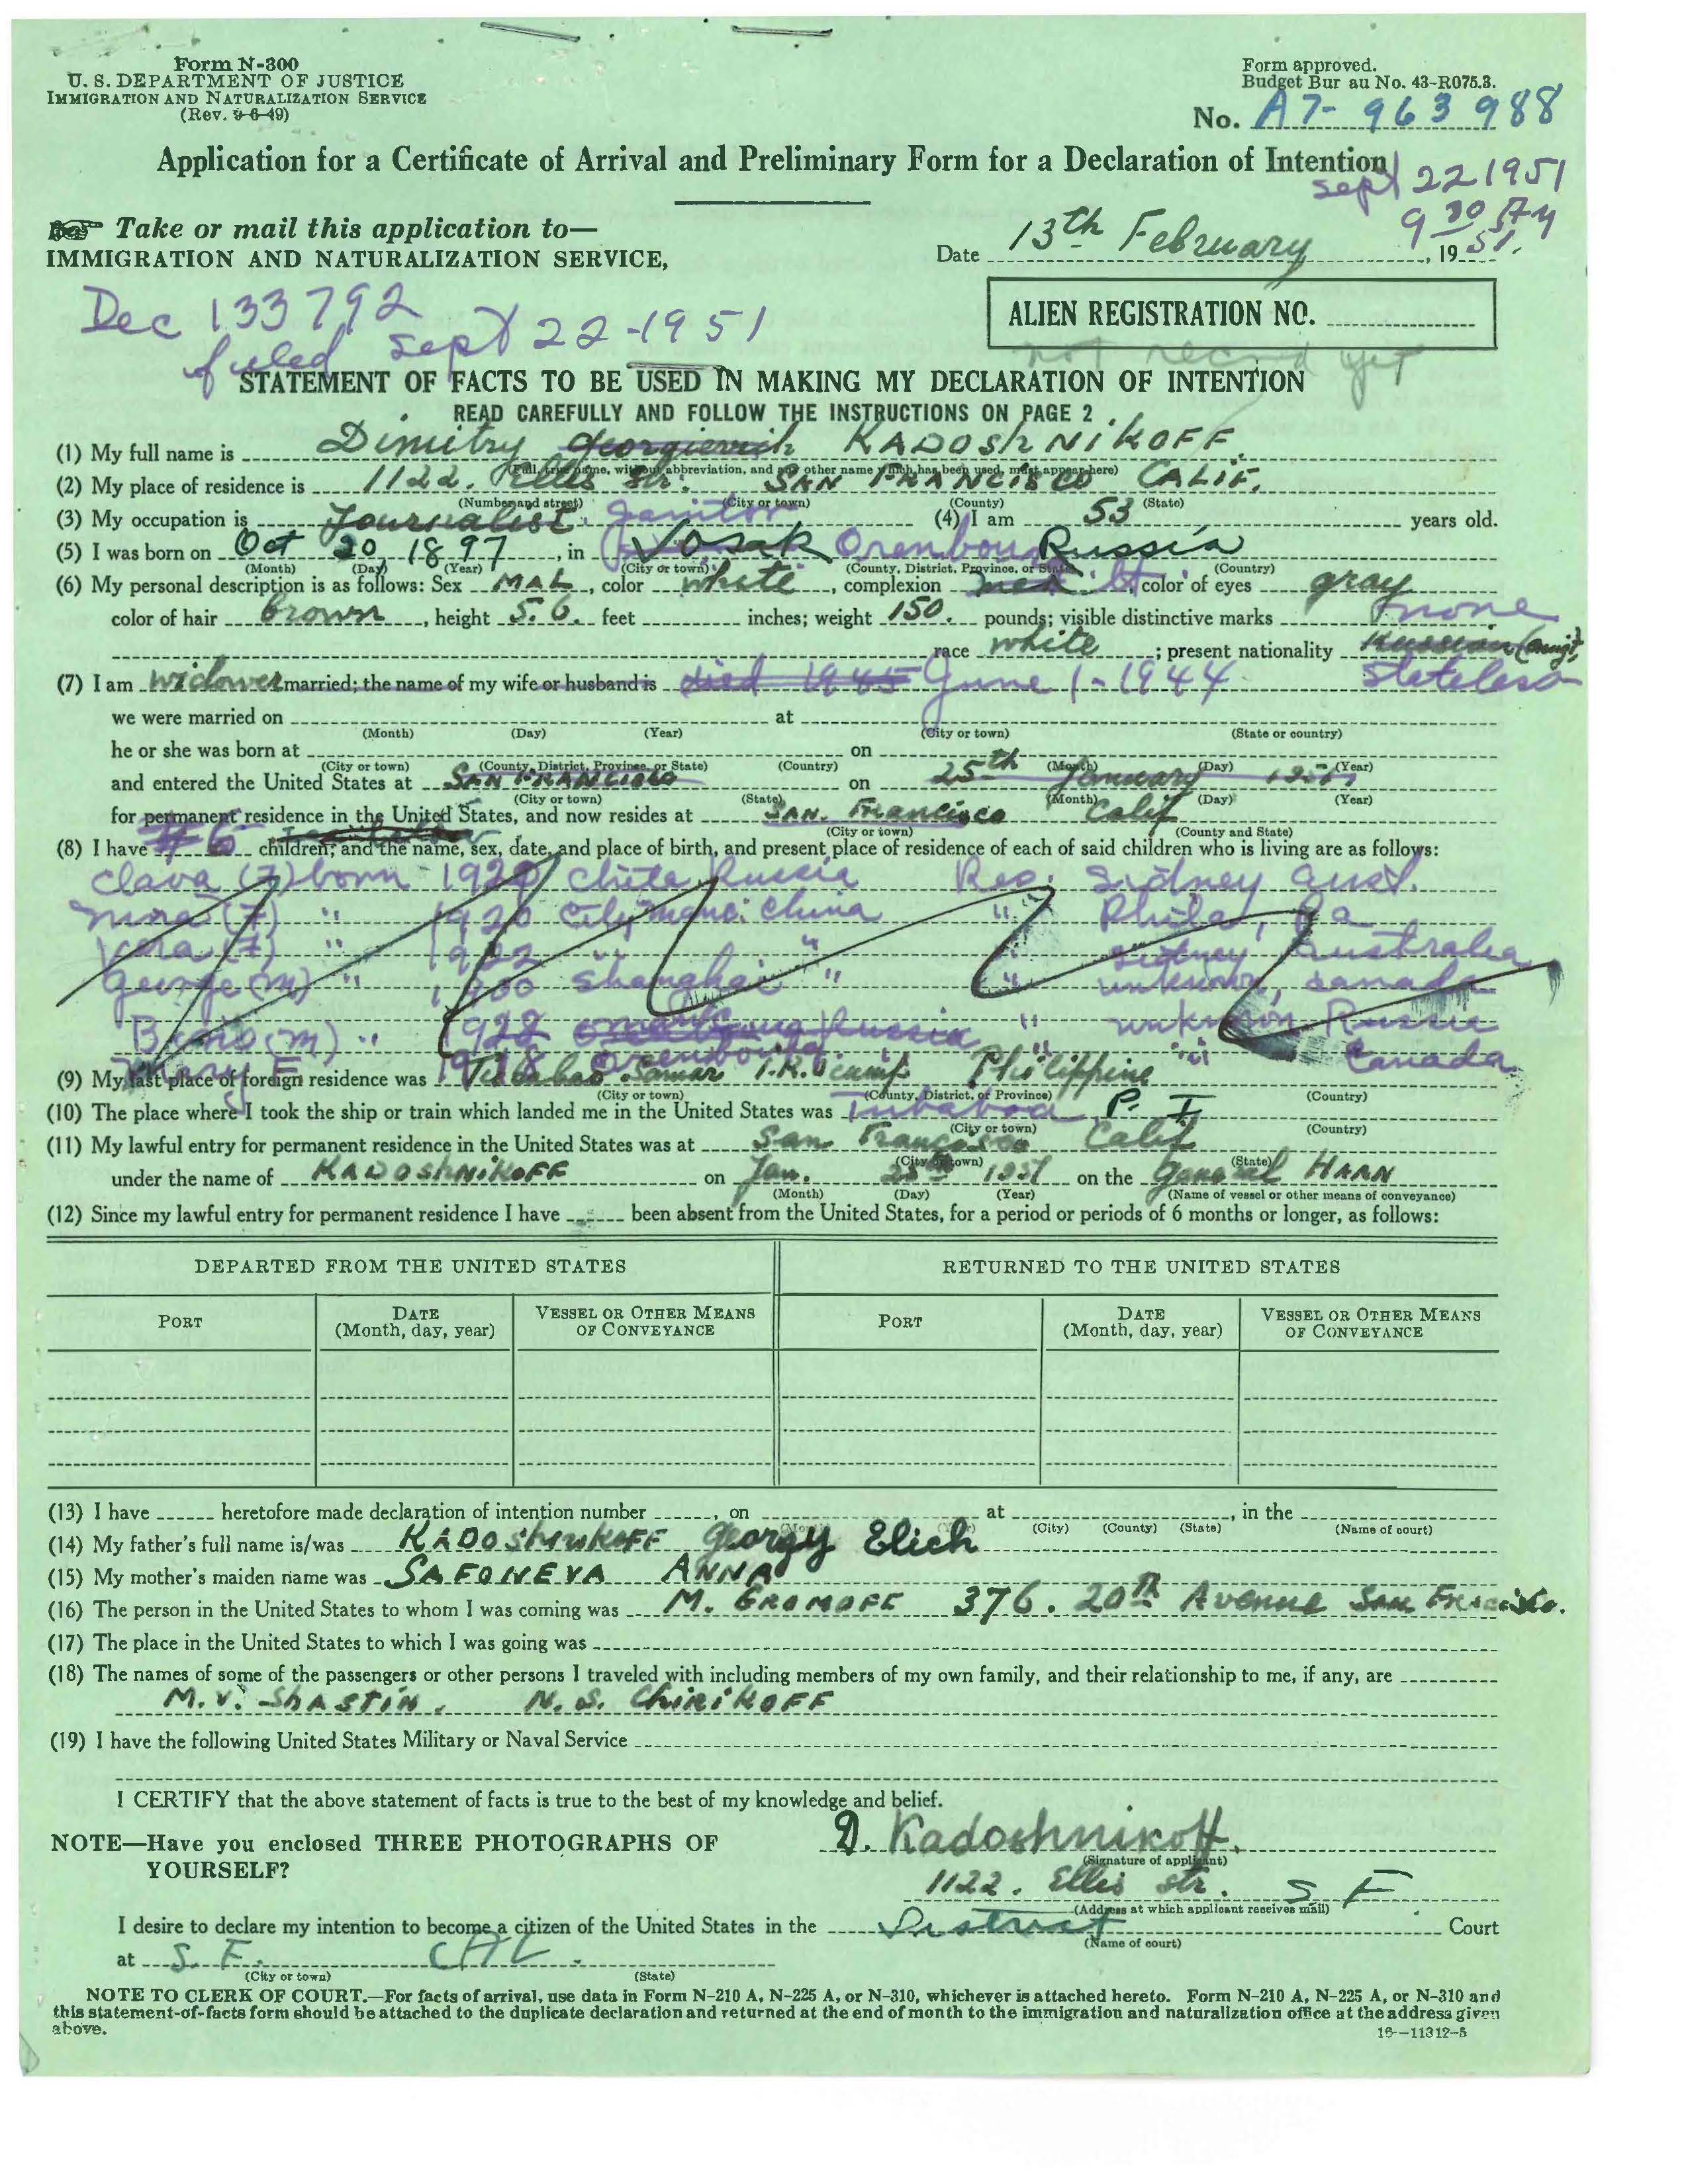 Form N-300
U. S. DEPARTMENT OF JUSTICE
IMMIGRATION AND NATURALIZATION SERVICE
(Rev. 9-6-49)
Form approved.
Budget Bur au No. 43-R075.3.
No. A7-963 988
Application for a Certificate of Arrival and Preliminary Form for a Declaration of Intention
Sept 22 1951
9 30 AM
Take or mail this application to—
IMMIGRATION AND NATURALIZATION SERVICE,
Date 13th February, 1951.
Dec 133792
filed Sept 22-1951
ALIEN REGISTRATION NO.
not record yet
STATEMENT OF FACTS TO BE USED IN MAKING MY DECLARATION OF INTENTION
READ CAREFULLY AND FOLLOW THE INSTRUCTIONS ON PAGE 2
(1) My full name is Dimitry Georgievich KADOShNiKOFF
(Full, true name, without abbreviation, and any other name which has been used, must appear here)
(2) My place of residence is 1122. Ellis Str. SAN FRANCISCO CALIF.
(Number and street) (City or town) (County) (State)
(3) My occupation is Journalist. Janitor (4) I am 53 years old.
(5) I was born on Oct 20 1897, in Orenbourg Russia
(Month) (Day) (Year) (City or town) (County, District, Province, or State) (Country)
(6) My personal description is as follows: Sex MAL, color white, complexion med, color of eyes gray
color of hair brown, height 5.6. feet inches; weight 150. pounds; visible distinctive marks none
race white; present nationality Russian (emigt, Stateless
(7) I am widower married; the name of my wife or husband is died 1945 June 1-1944
we were married on at
(Month) (Day) (Year) (City or town) (State or country)
he or she was born at on
(City or town) (County, District, Province, or State) (Country) (Month) (Day) (Year)
and entered the United States at SAN FRANCISCO on 25th January 1951
(City or town) (State) (Month) (Day) (Year)
for permanent residence in the United States, and now resides at SAN. Francisco Calif
(City or town) (County and State)
(8) I have 6 children; and the name, sex, date, and place of birth, and present place of residence of each of said children who is living are as follows:
Clava (F) born 1920 Chita Russia Res. Sidney Aust.
(F) " 1920 China " Phila, Pa
Vera (F) " 1922 " " Sidney, Australia
George (m) " Shanghai " " unknown, Canada
(m) " 1922 Russia " unknown Russia
Mary F 1918 Orenbourg " " Canada
(9) My last place of foreign residence was Tubabao Samar I.R.O camp Philippine
(City or town) (County, District, or Province) (Country)
(10) The place where I took the ship or train which landed me in the United States was Tubabao P. I
(City or town) (Country)
(11) My lawful entry for permanent residence in the United States was at San Francisco Calif
(City or town) (State)
under the name of KADOShNiKOFF on Jan. 25th 1951 on the General HAAN
(Month) (Day) (Year) (Name of vessel or other means of conveyance)
(12) Since my lawful entry for permanent residence I have been absent from the United States, for a period or periods of 6 months or longer, as follows:
DEPARTED FROM THE UNITED STATES RETURNED TO THE UNITED STATES
PORT DATE (Month, day, year) VESSEL OR OTHER MEANS OF CONVEYANCE PORT DATE (Month, day, year) VESSEL OR OTHER MEANS OF CONVEYANCE
(13) I have heretofore made declaration of intention number, on at, in the
(City) (County) (State) (Name of court)
(14) My father's full name is/was KADOShNiKOFF Georgy Elich
(15) My mother's maiden name was SAFONEVA ANNA
(16) The person in the United States to whom I was coming was M. GROMOFF 376. 20th Avenue San Francisco.
(17) The place in the United States to which I was going was
(18) The names of some of the passengers or other persons I traveled with including members of my own family, and their relationship to me, if any, are
M. V. ShASTiN, N. S. ChiRiKOFF
(19) I have the following United States Military or Naval Service
I CERTIFY that the above statement of facts is true to the best of my knowledge and belief.
NOTE—Have you enclosed THREE PHOTOGRAPHS OF
YOURSELF?
D. Kadoshnikoff.
(Signature of applicant)
1122. Ellis str. S F
(Address at which applicant receives mail)
I desire to declare my intention to become a citizen of the United States in the District Court
(Name of court)
at S. F. CAL.
(City or town) (State)
NOTE TO CLERK OF COURT.—For facts of arrival, use data in Form N-210 A, N-225 A, or N-310, whichever is attached hereto. Form N-210 A, N-225 A, or N-310 and
this statement-of-facts form should be attached to the duplicate declaration and returned at the end of month to the immigration and naturalization office at the address given
above.
16—11312-5